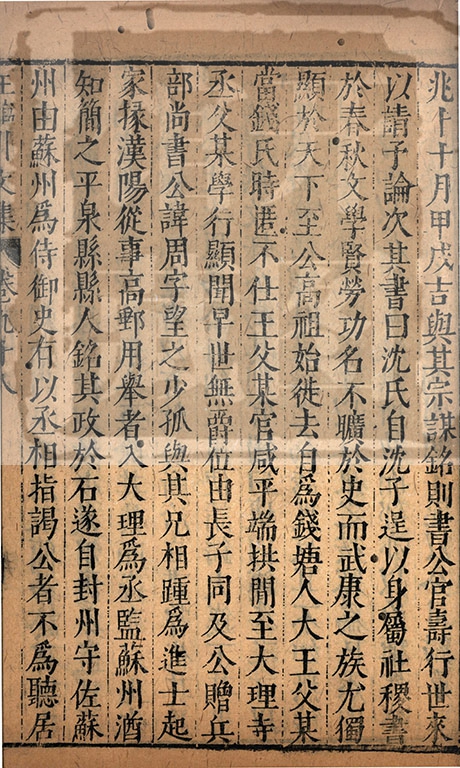 兆卜十月甲戌吉與其宗謀銘則書公官壽行世來
以請予論次其書曰沈氏自沈子逞以身屬社稷書
於春秋文學賢勞功名不曠於史而武康之族尤獨
顯於天下至公高祖始徙去自爲錢塘人大王父某
當錢氏時匿不仕王父某官咸平端拱閒至大理寺
丞父某學行顯聞早世無爵位由長子同及公贈兵
部尚書公諱周字望之少孤與其兄相踵爲進士起
家掾漢陽從事高郵用舉者入大理爲丞監蘇州酒
知簡之平泉縣縣人銘其政於石遂自封州守佐蘇
州由蘇州爲侍御史有以丞相指謁公者不爲聽居
王臨川文集 卷九十八